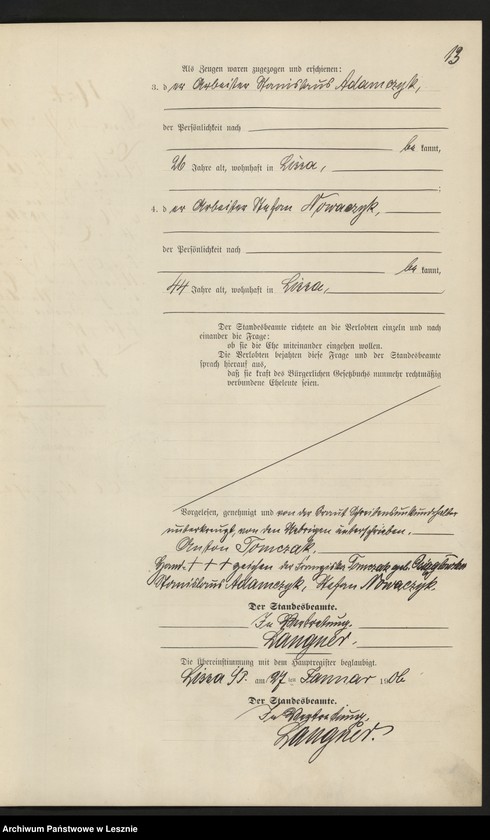 13
Als Zeugen waren zugezogen und erschienen:
3. der Arbeiter Stanislaus Adamczyk,
der Persönlichkeit nach
bekannt,
26 Jahre alt, wohnhaft in Lissa,
;
4. der Arbeiter Stefan Nowaczyk,
der Persönlichkeit nach
bekannt,
44 Jahre alt, wohnhaft in Lissa,
Der Standesbeamte richtete an die Verlobten einzeln und nach
einander die Frage:
ob sie die Ehe miteinander eingehen wollen.
Die Verlobten bejahten diese Frage und der Standesbeamte
sprach hierauf aus,
daß sie kraft des Bürgerlichen Gesetzbuchs nunmehr rechtmäßig
verbundene Eheleute seien.
Vorgelesen, genehmigt und von der Braut Schreibensunkundshalber
unterkreuzt, von den Uebrigen unterschrieben.
Anton Tomczak.
Hand- + + + zeichen der Franziska Tomczak geb.
Stanislaus Adamczyk, Stefan Nowaczyk.
Der Standesbeamte.
In Vertretung.
Langner.
Die Übereinstimmung mit dem Hauptregister beglaubigt.
Lissa i/P. am 27 ten Januar 1906
Der Standesbeamte.
In Vertretung.
Langner.
Archiwum Państwowe w Lesznie